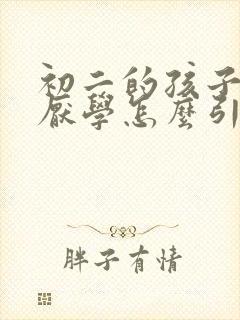 初二的孩子
厭學怎麼引
胖子有情